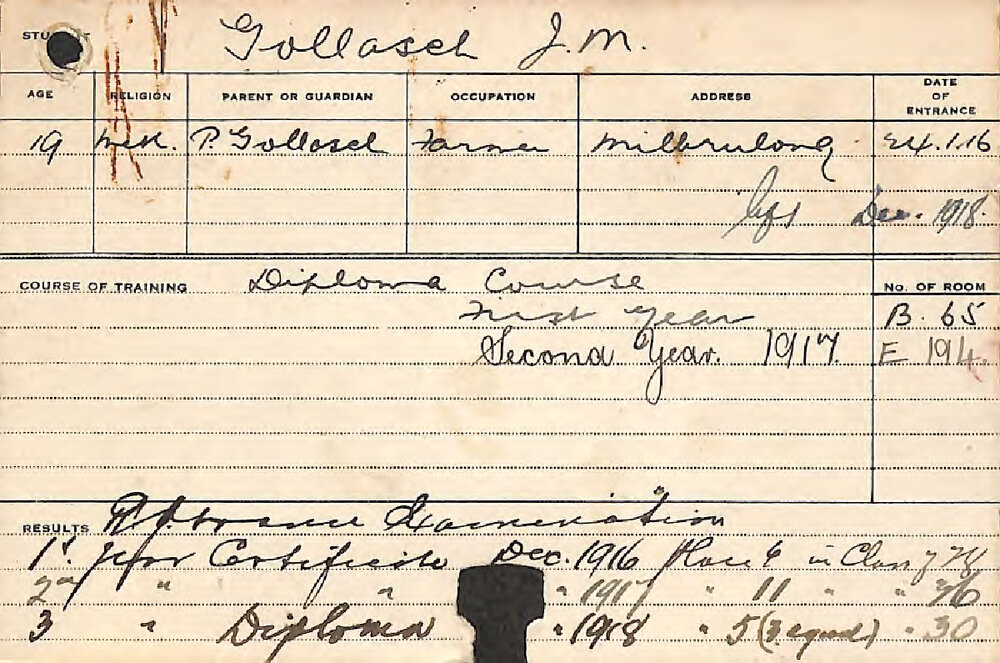 STUDENT Gollasch J.M.
AGE RELIGION PARENT OR GUARDIAN OCCUPATION ADDRESS DATE OF ENTRANCE
19 Meth. P. Gollasch Farmer Milbrulong 24.1.16
left Dec. 1918.
COURSE OF TRAINING Diploma Course No. OF ROOM
First Year B. 65
Second Year. 1917. E 194.
RESULTS Entrance Examination
1st Year Certificate Dec. 1916 Place 6 in Class of
2nd " " " 1917 " 11 " " 36
3 " Diploma " 1918 " 5 (3 equal) " 30